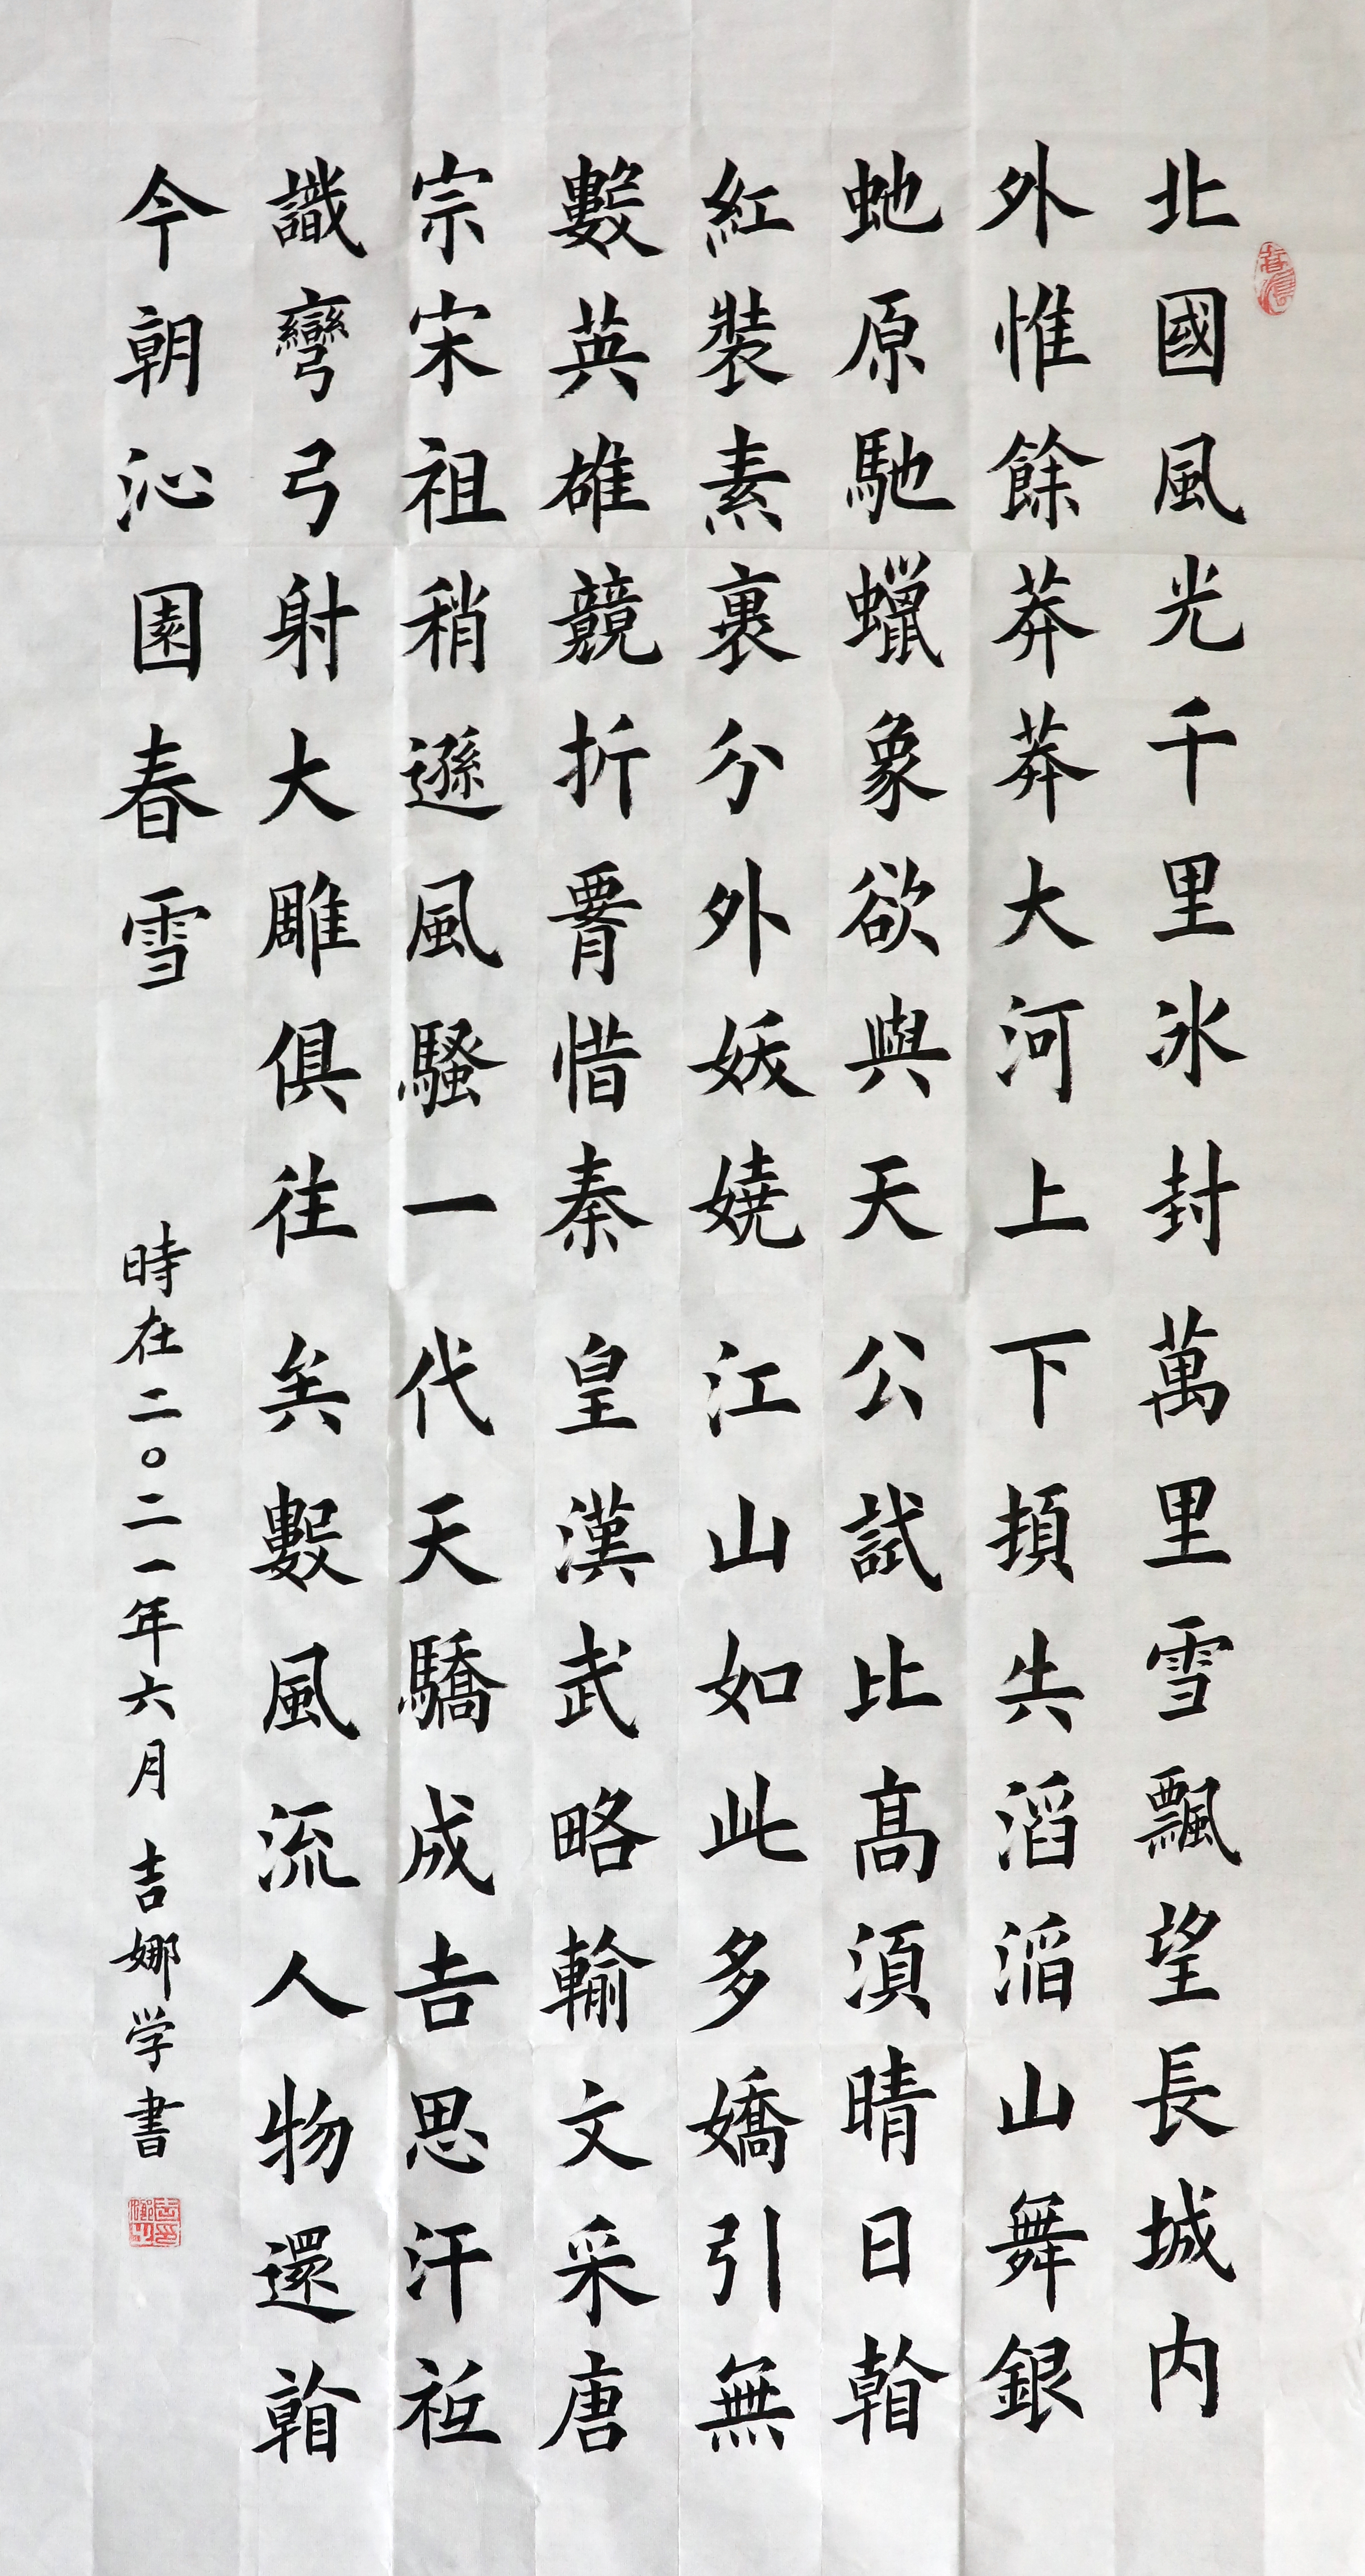 北國風光千里冰封萬里雪飄望長城内
外惟餘莽莽大河上下頓失滔滔山舞銀
虵原馳蠟象欲與天公試比高須晴日看
紅裝素裹分外妖嬈江山如此多嬌引無
數英雄競折腰惜秦皇漢武略輸文采唐
宗宋祖稍遜風騷一代天驕成吉思汗衹
識彎弓射大雕俱往矣數風流人物還看
今朝沁園春雪
時在二〇二一年六月吉娜学書